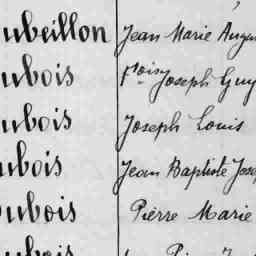 ubeillon Jean Marie Augu
ubois Fçois Joseph Guy
ubois Joseph Louis
ubois Jean Baptiste Jose
ubois Pierre Marie
ubois